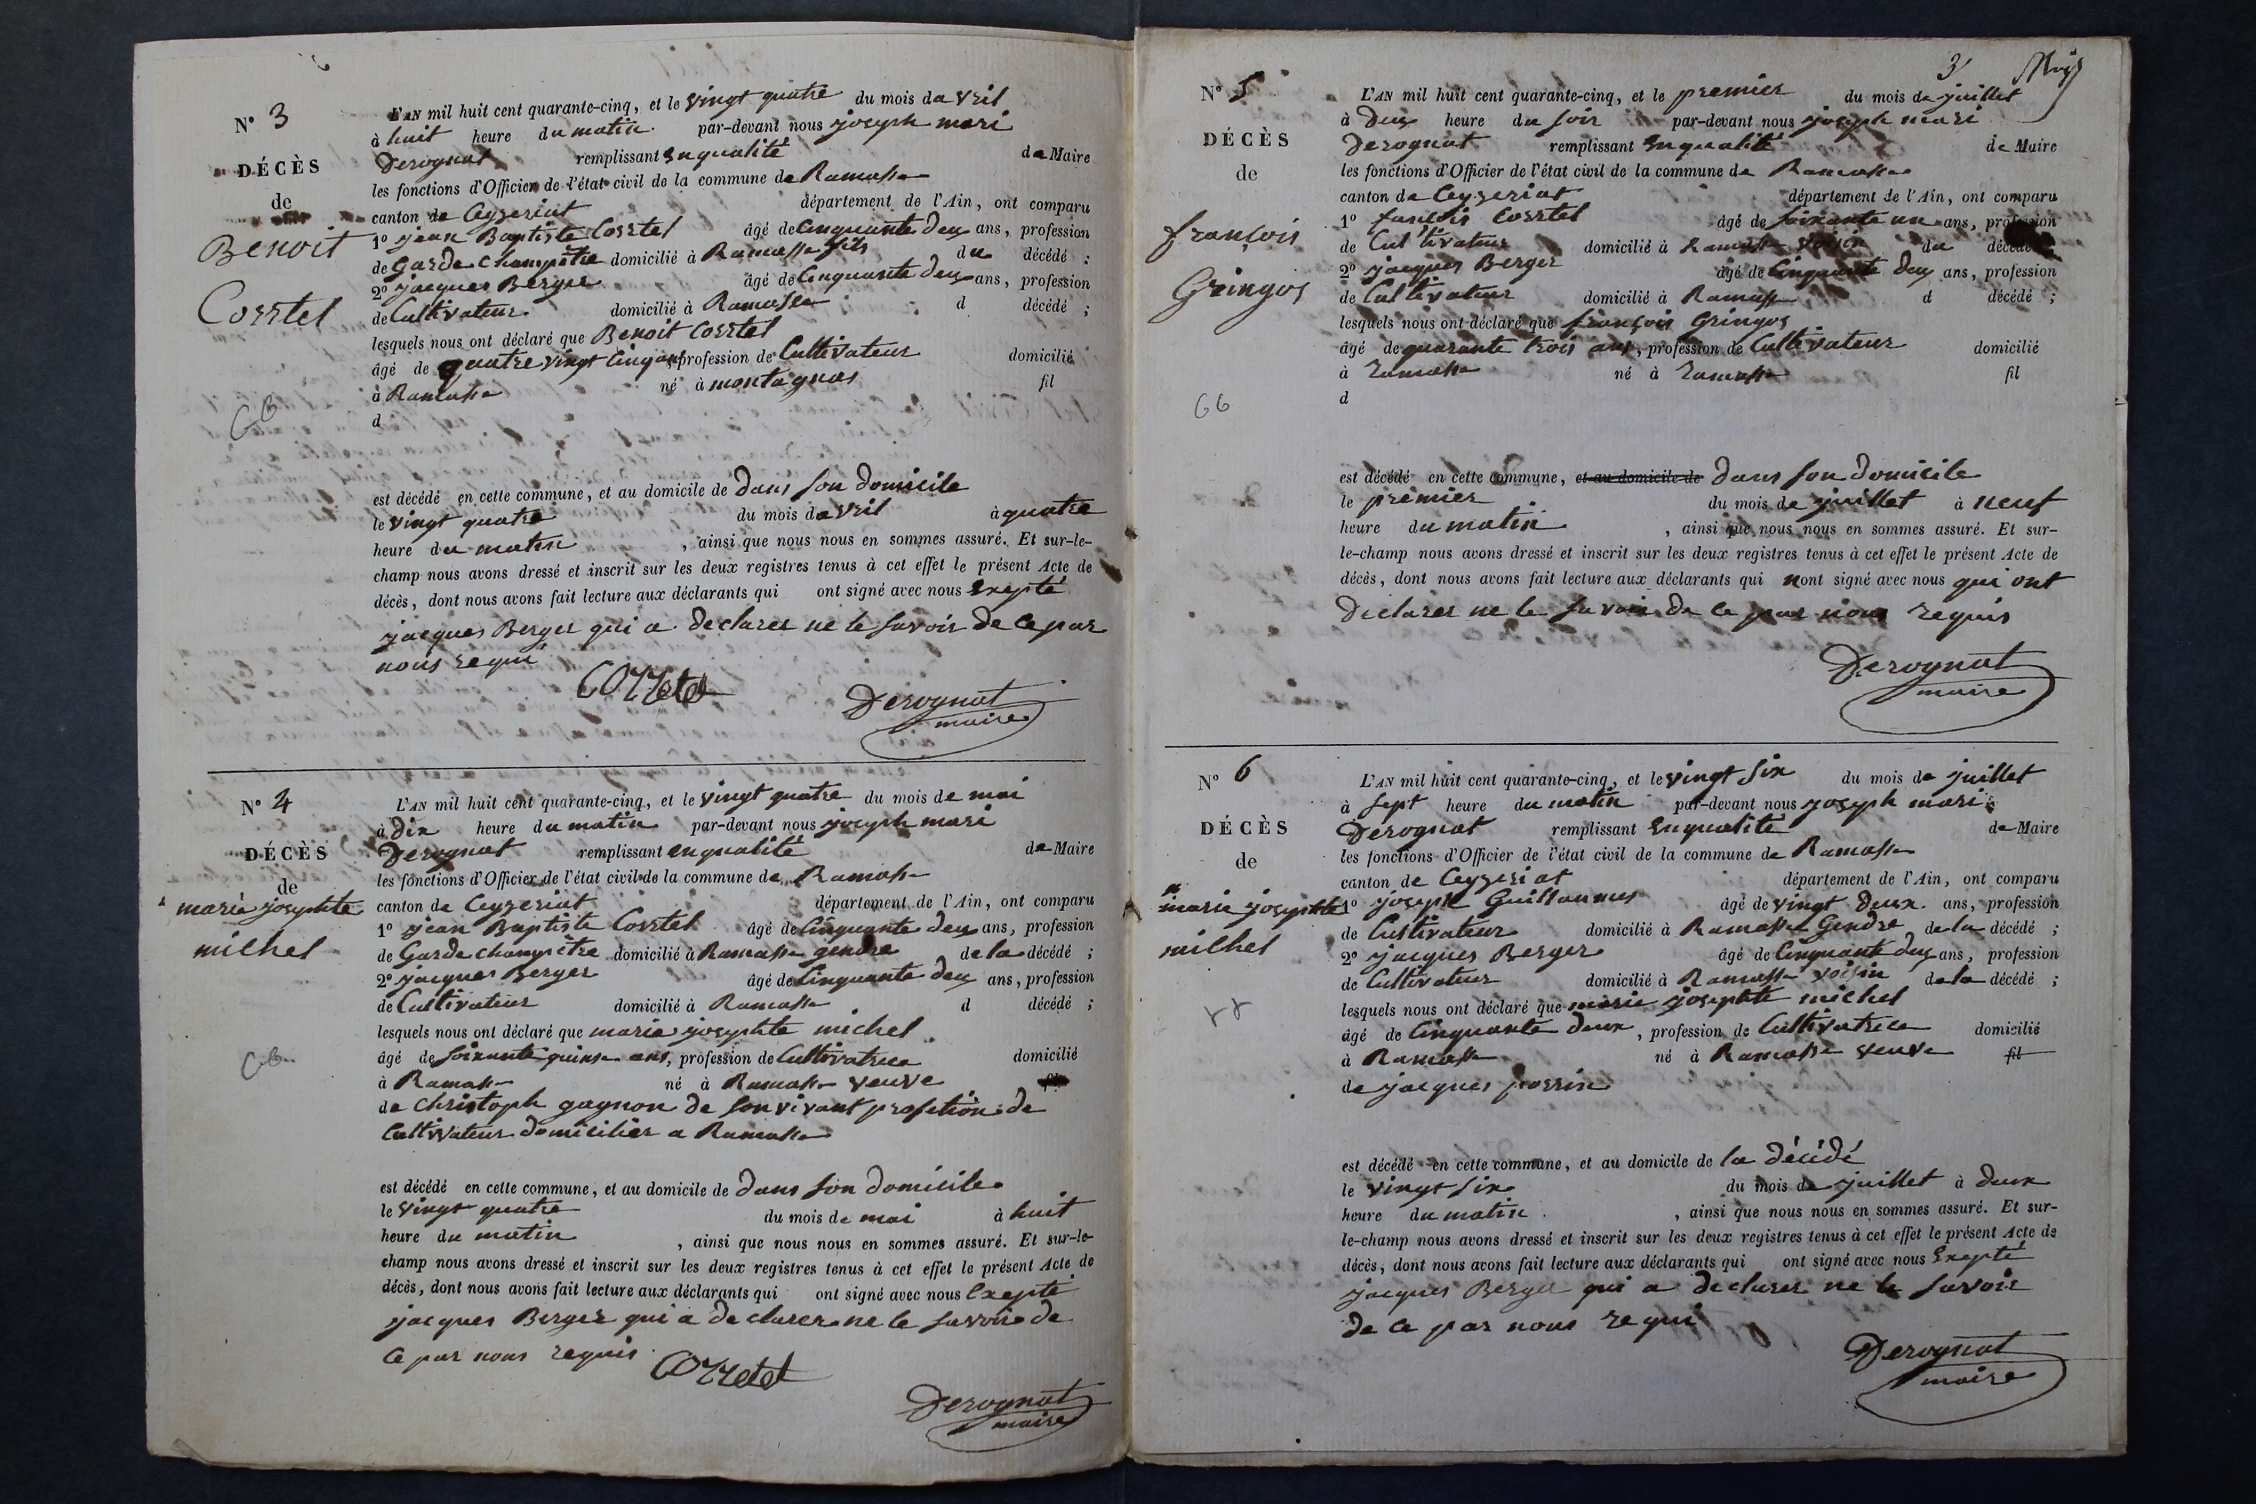 N° 3
DÉCÈS
de
Benoit
Corrtel
L'AN mil huit cent quarante-cinq, et le vingt quatre du mois da vril
à huit heure du matin par-devant nous joseph mari
Derognat remplissant enqualité de Maire
les fonctions d'Officier de l'état civil de la commune de Ramasse
canton de Ceyzeriat département de l'Ain, ont comparu
1° jean Baptiste Corrtel âgé de Cinquante deux ans, profession
de Garde Champetre domicilié à Ramasse fils du décédé ;
2° jacques Berger âgé de Cinquante deux ans, profession
de Cultivateur domicilié à Ramasse d décédé ;
lesquels nous ont déclaré que Benoit Corrtel
âgé de quatre vingt Cinq ans profession de Cultivateur domicilié
à Ramasse né à montagnas fil
d
est décédé en cette commune, et au domicile de dans son domicile
le vingt quatre du mois da vril à quatre
heure du matin , ainsi que nous nous en sommes assuré. Et sur-le-
champ nous avons dressé et inscrit sur les deux registres tenus à cet effet le présent Acte de
décès, dont nous avons fait lecture aux déclarants qui ont signé avec nous Exepté
jacques Berger qui a declarer ne le savoir de ce par
nous requi
Corrtel
Derognat
maire
N° 4
DÉCÈS
de
marie josephte
michel
L'AN mil huit cent quarante-cinq, et le vingt quatre du mois de mai
à dix heure du matin par-devant nous joseph mari
Derognat remplissant enqualité de Maire
les fonctions d'Officier de l'état civil de la commune de Ramasse
canton de Ceyzeriat département de l'Ain, ont comparu
1° jean Baptiste Corrtel âgé de Cinquante deux ans, profession
de Garde champetre domicilié à Ramasse gendre de la décédé ;
2° jacques Berger âgé de Cinquante deux ans, profession
de Cultivateur domicilié à Ramasse d décédé ;
lesquels nous ont déclaré que marie josephte michel
âgé de soixante quinse ans, profession de Cultivatrice domicilié
à Ramasse né à Ramasse veuve
de christoph gagnon de son vivant profetion de
Cultivateur domicilier a Ramasse
est décédé en cette commune, et au domicile de dans son domicile
le vingt quatre du mois de mai à huit
heure du matin , ainsi que nous nous en sommes assuré. Et sur-le-
champ nous avons dressé et inscrit sur les deux registres tenus à cet effet le présent Acte de
décès, dont nous avons fait lecture aux déclarants qui ont signé avec nous Exepté
jacques Berger qui a declarer ne le savoir de
ce par nous requis
Corrtel
Derognat
maire
3
N° 5
DÉCÈS
de
françois
Gringos
66
L'AN mil huit cent quarante-cinq, et le premier du mois de juillet
à Deux heure du soir par-devant nous joseph mari
Derognat remplissant Enqualité de Maire
les fonctions d'Officier de l'état civil de la commune de Ramasse
canton de Ceyzeriat département de l'Ain, ont comparu
1° françois Corrtel âgé de soixante un ans, profession
de Cultivateur domicilié à Ramasse voisin du décédé
2° jacques Berger âgé de Cinquante deux ans, profession
de Cultivateur domicilié à Ramasse d décédé ;
lesquels nous ont déclaré que françois Gringos
âgé de quarante trois ans, profession de Cultivateur domicilié
à ramasse né à ramasse fil
d
est décédé en cette commune, et au domicile de dans son domicile
le premier du mois de juillet à neuf
heure du matin , ainsi que nous nous en sommes assuré. Et sur-
le-champ nous avons dressé et inscrit sur les deux registres tenus à cet effet le présent Acte de
décès, dont nous avons fait lecture aux déclarants qui nont signé avec nous qui ont
Déclarer ne le savoir de ce par nous requis
Derognat
maire
N° 6
DÉCÈS
de
marie josephte
michel
L'AN mil huit cent quarante-cinq, et le vingt six du mois de juillet
à sept heure du matin par-devant nous joseph mari
Derognat remplissant Enqualité de Maire
les fonctions d'Officier de l'état civil de la commune de Ramasse
canton de Ceyzeriat département de l'Ain, ont comparu
1° joseph Guillaumes âgé de vingt deux ans, profession
de Cultivateur domicilié à Ramasse Gendre de la décédé ;
2° jacques Berger âgé de Cinquante deux ans, profession
de Cultivateur domicilié à Ramasse voisin de la décédé ;
lesquels nous ont déclaré que marie josephte michel
âgé de Cinquante deux , profession de Cultivatrice domicilié
à Ramasse né à Ramasse veuve fil
de jacques perrin
est décédé en cette commune, et au domicile de la décédé
le vingt six du mois de juillet à deux
heure du matin , ainsi que nous nous en sommes assuré. Et sur-
le-champ nous avons dressé et inscrit sur les deux registres tenus à cet effet le présent Acte de
décès, dont nous avons fait lecture aux déclarants qui ont signé avec nous Exepté
jacques Berger qui a declarer ne le savoir
de ce par nous requi
Derognat
maire